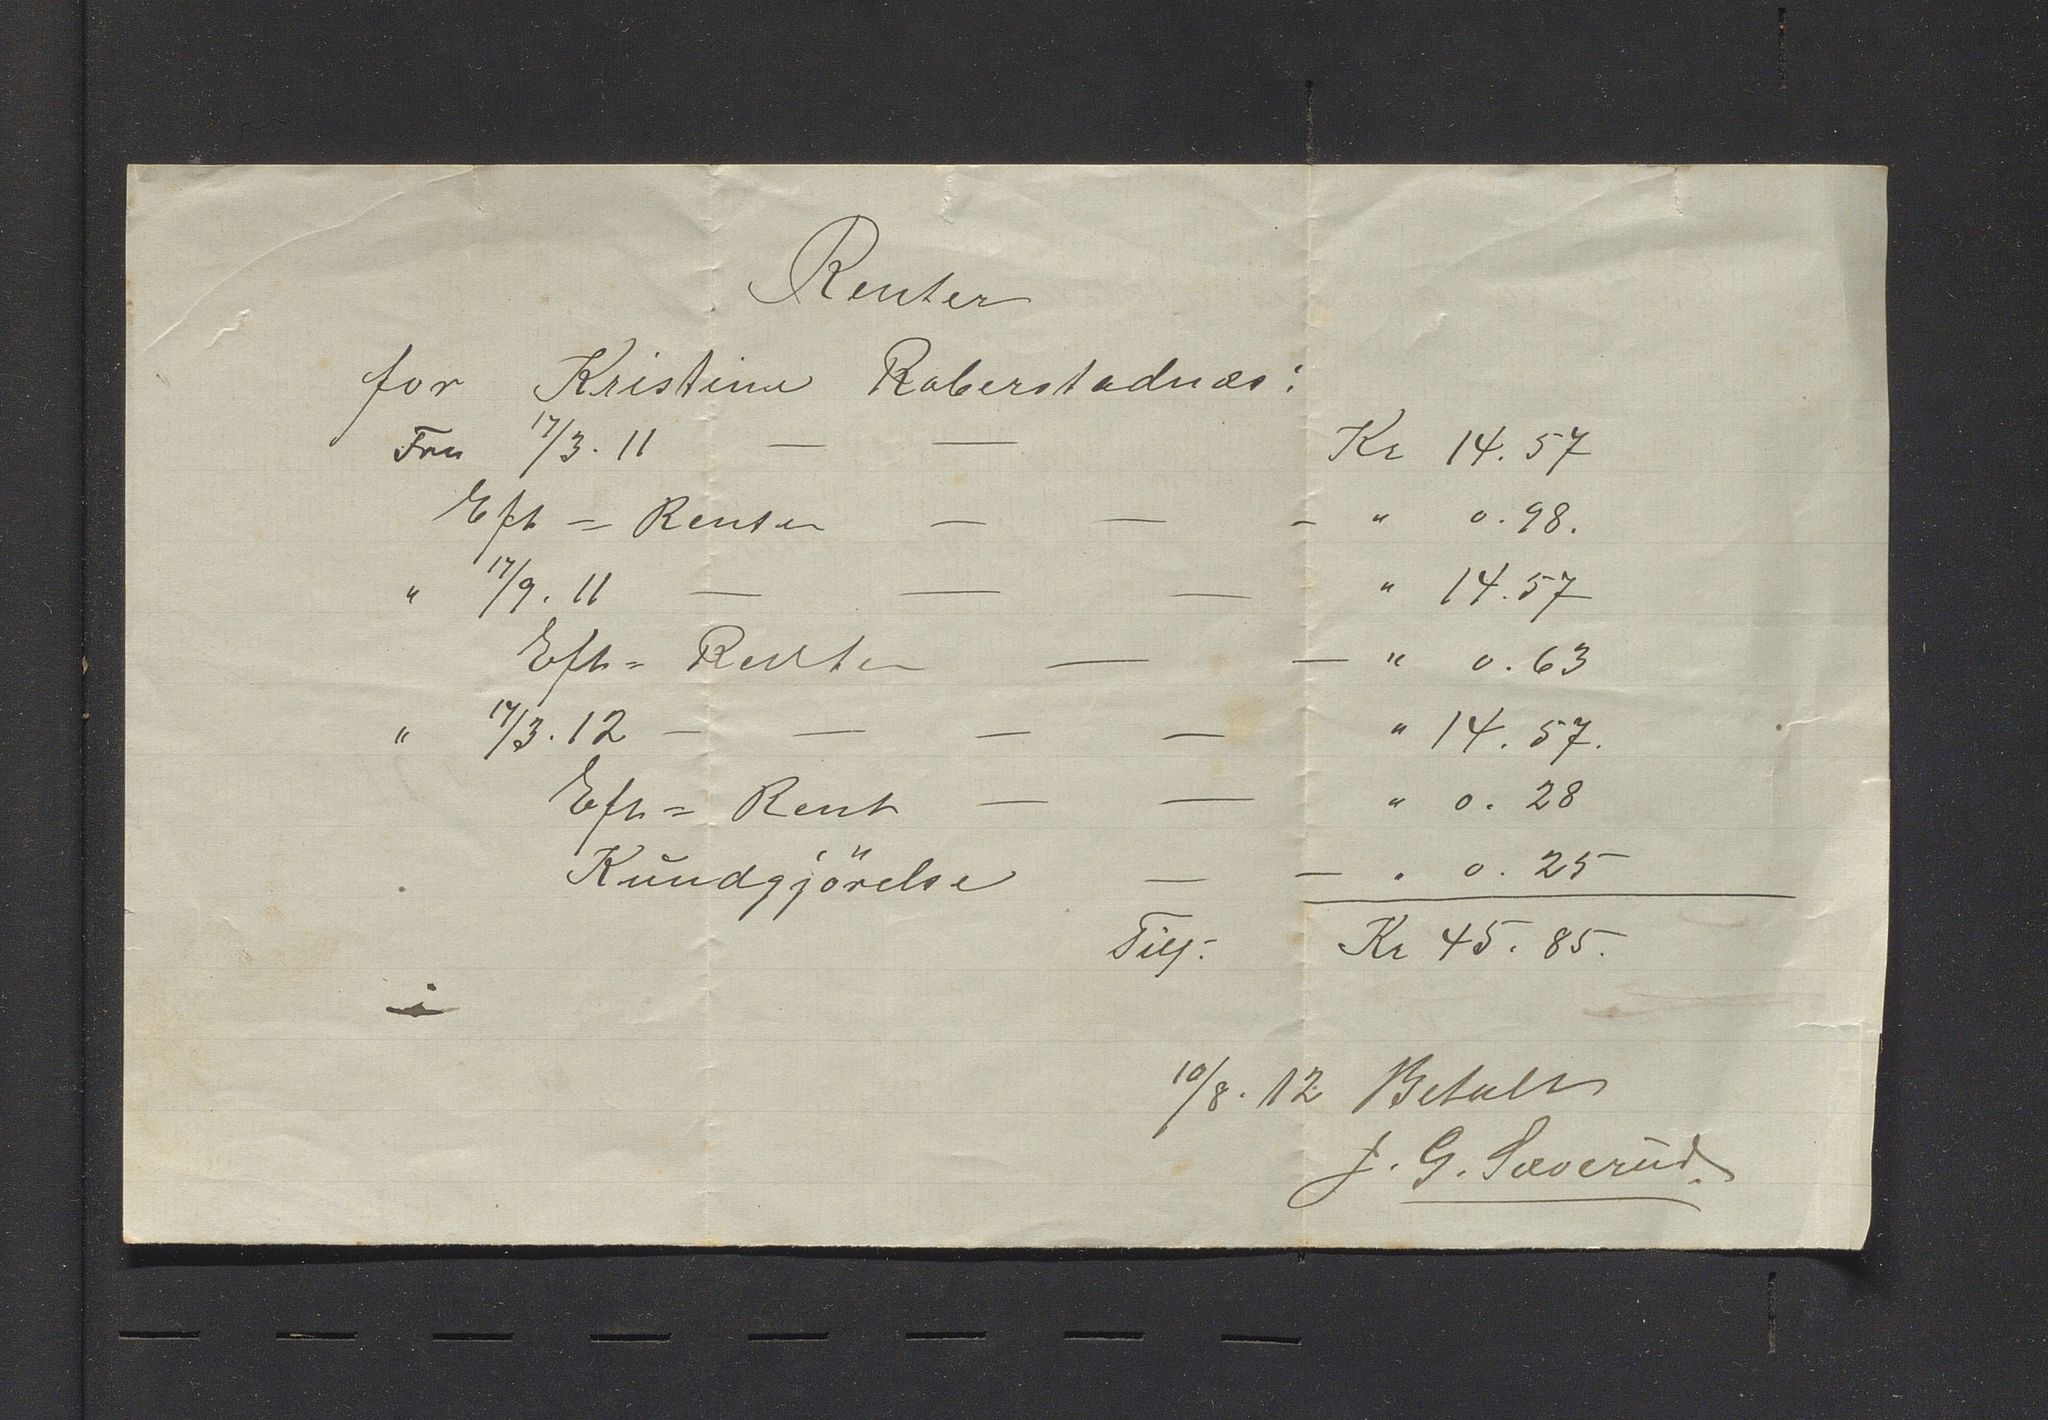 Renter
for Kristine Raberstadnæs:
Fra 17/3. 11 — — Kr 14.57
Eft = Renter — — - " 0.98.
" 17/9. 11 — — — " 14.57
Eft = Renter — — " 0.63
" 17/3. 12 — — — — " 14.57.
Eft = Rent — — " 0.28
Kundgjörelse — — " 0.25
Tils. Kr 45.85.
10/8. 12 Betalt
J. G. Sæverud.